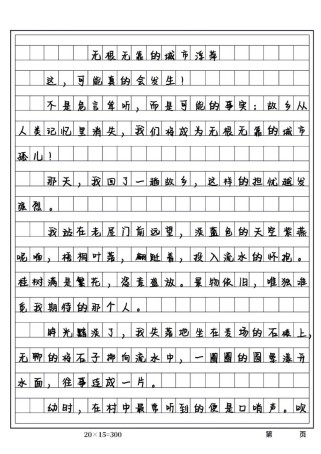 无根无靠的城市浮萍
这，可能真的会发生！
不是危言耸听，而是可能的事实：故乡从
人类记忆里消失，我们将成为无根无靠的城市
孤儿！
那天，我回了一趟故乡，这样的担忧越发
强烈。
我站在老屋门前远望，淡蓝色的天空紫燕
呢喃，梧桐叶落，翩跹着，投入流水的怀抱。
桂树满是繁花，恣意盛放。景物依旧，唯独难
觅我期待的那个人。
时光黯淡了，我失落地坐在麦场的石磙上，
无聊的将石子掷向流水中，一圈圈的圆晕漾开
水面，往事连成一片。
幼时，在村中最常听到的便是口哨声。吹
20×15=300
第 页